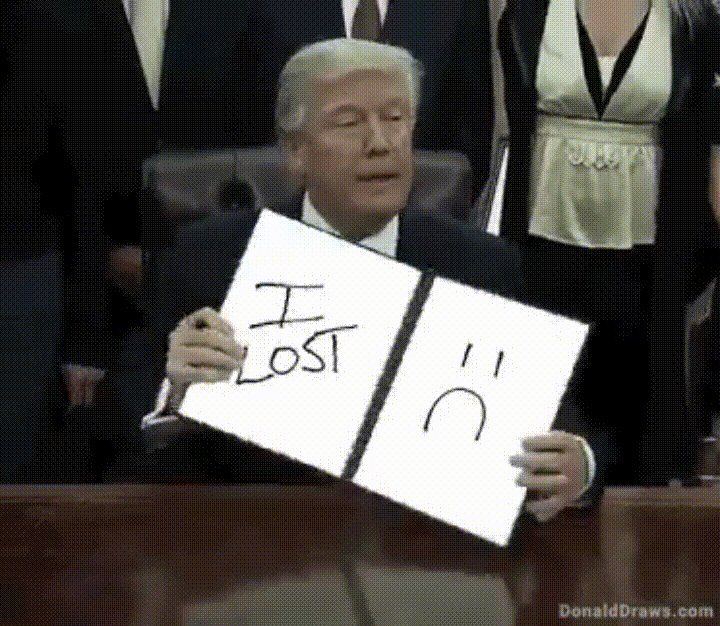 I
LOST
DonaldDraws.com